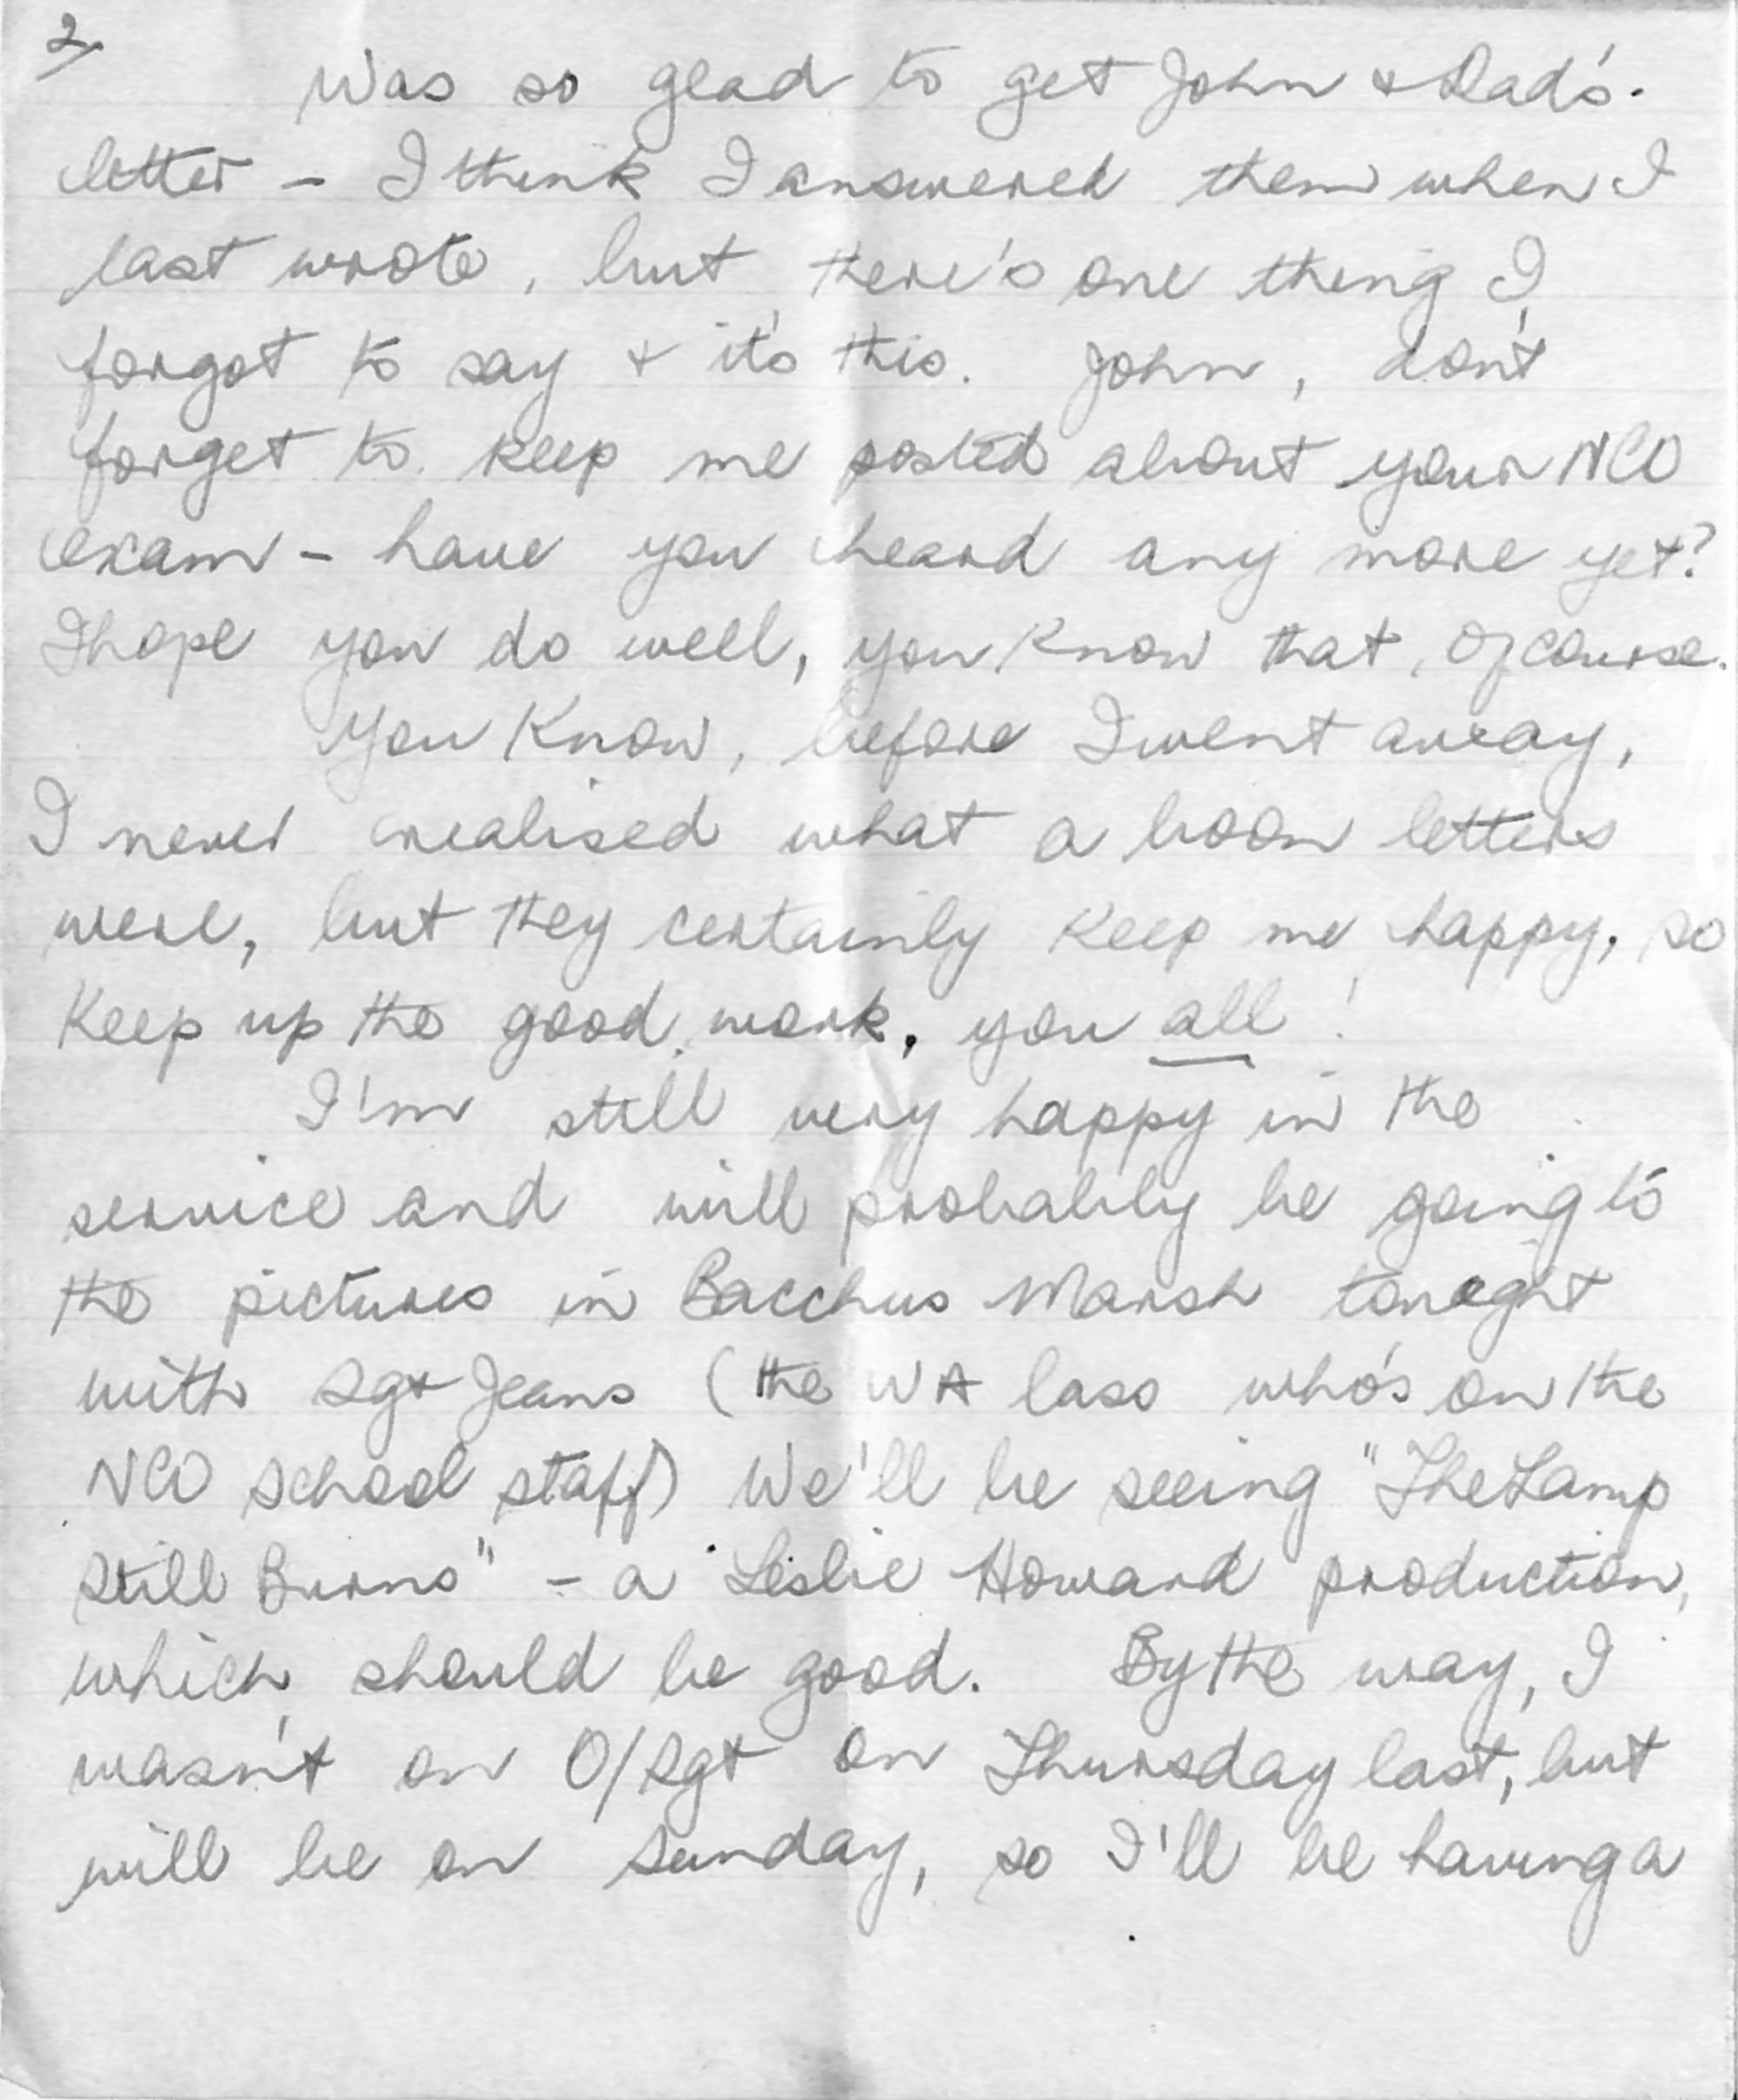 2/
Was so glad to get John & Dad's.
letter - I think I answered them when I
last wrote, but there's one thing I
forgot to say & it's this. John, don't
forget to keep me posted about your NCO
exam - have you heard any more yet?
I hope you do well, you know that, of course.
You know, before I went away,
I never realised what a boon letters
were, but they certainly keep me happy, so
keep up the good work, you all!
I'm still very happy in the
service and will probably be going to
the pictures in Bacchus Marsh tonight
with Sgt Jeans (the WA lass who's on the
NCO school staff) We'll be seeing "The Lamp
Still Burns" - a Leslie Howard production,
which should be good. By the way, I
wasn't on O/Sgt on Thursday last, but
will be on Sunday, so I'll be having a